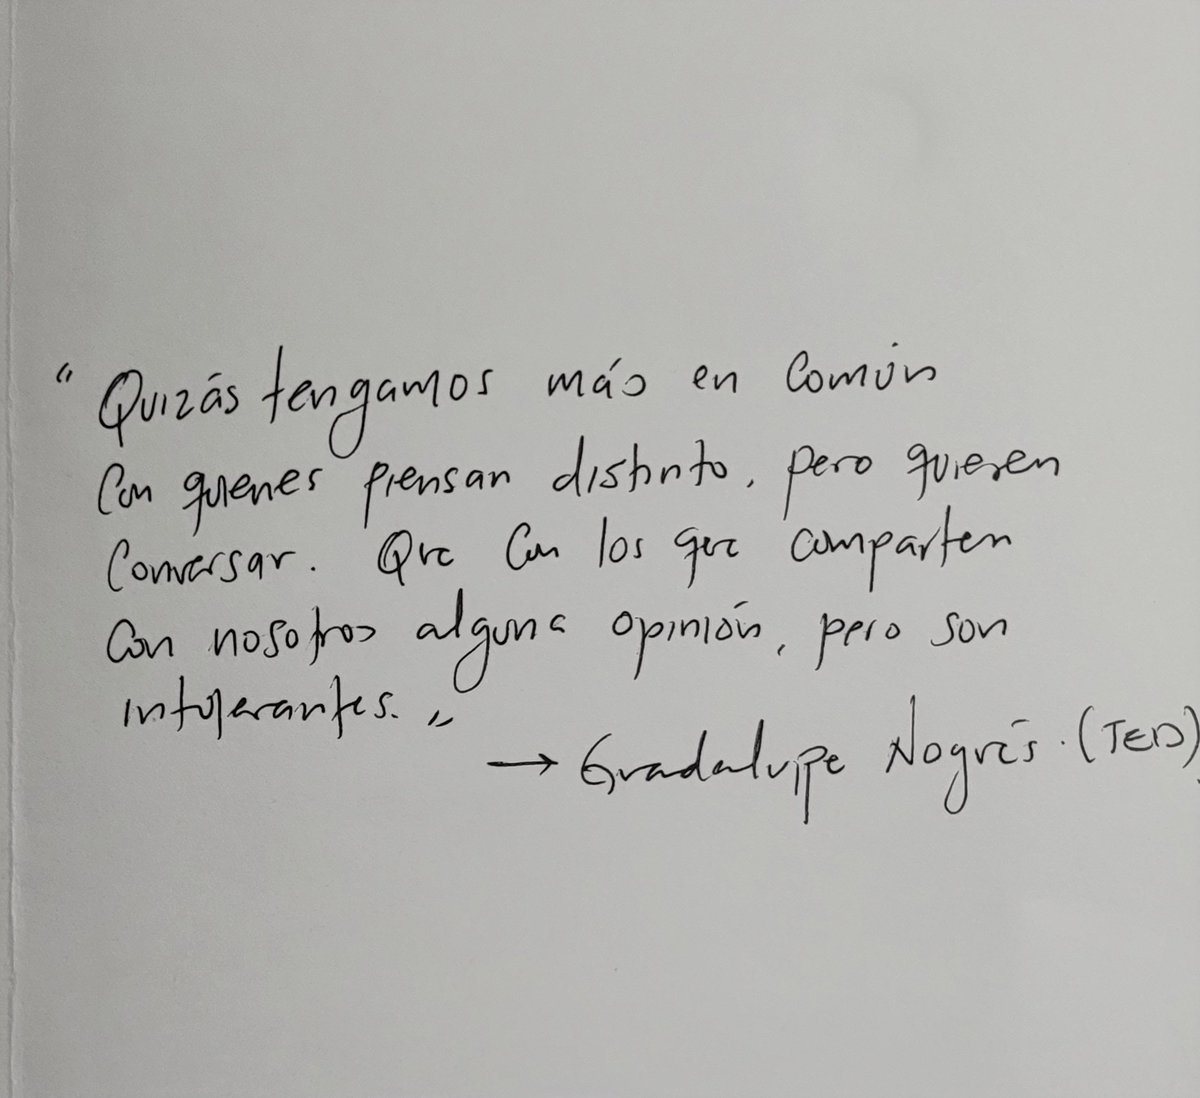 "Quizás tengamos más en común
con quienes piensan distinto, pero quieren
conversar. Que con los que comparten
con nosotros alguna opinión, pero son
intolerantes."
→ Guadalupe Nogués. (TED)